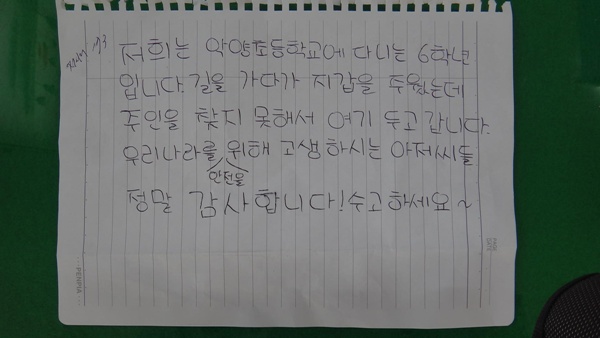 저희는 악양초등학교에 다니는 6학년
입니다. 길을 가다가 지갑을 주웠는데
주인을 찾지 못해서 여기 두고 갑니다.
우리나라를 위해 고생하시는 아저씨들
안전을
정말 감사합니다! 수고하세요~
PENPIA